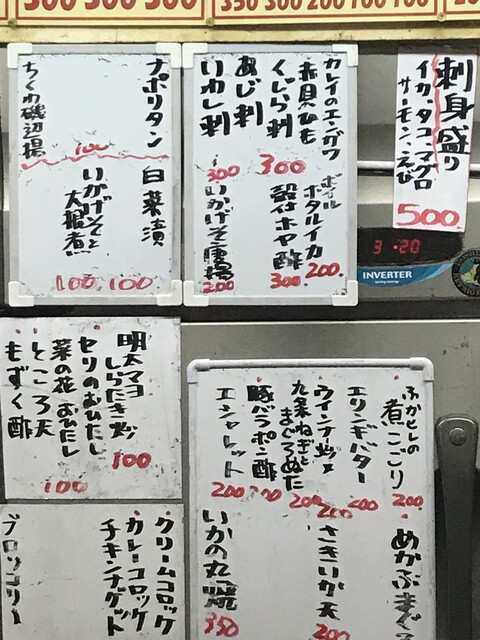 300 300 300
350 300 200 100 100
刺身盛り
イカ、タコ、マグロ
サーモン、えび
500.
カレイのエンガワ
赤貝ひも
くじら刺
あじ刺
いわし刺
300
300
ボイル
ホタルイカ
200.
殻付ホヤ酢
300.
いかげそ唐揚
200
ナポリタン
ちくわ磯辺揚
100
白菜漬
100
いかげそと
大根煮
100
3 20
INVERTER
明太マヨ
しらたき炒
100
セリのおひたし
菜の花おひたし
ところ天
もずく酢
100
ふかヒレの
煮こごり
200.
エリンギバター
200
ウインナー炒め
200
九条ねぎと
まぐろぬた
200
豚バラポン酢
エシャレット
200
めかぶ
さきいか天
200
いかの丸焼
350
クリームコロッケ
カレーコロッケ
チキンナゲット
ブロッコリー